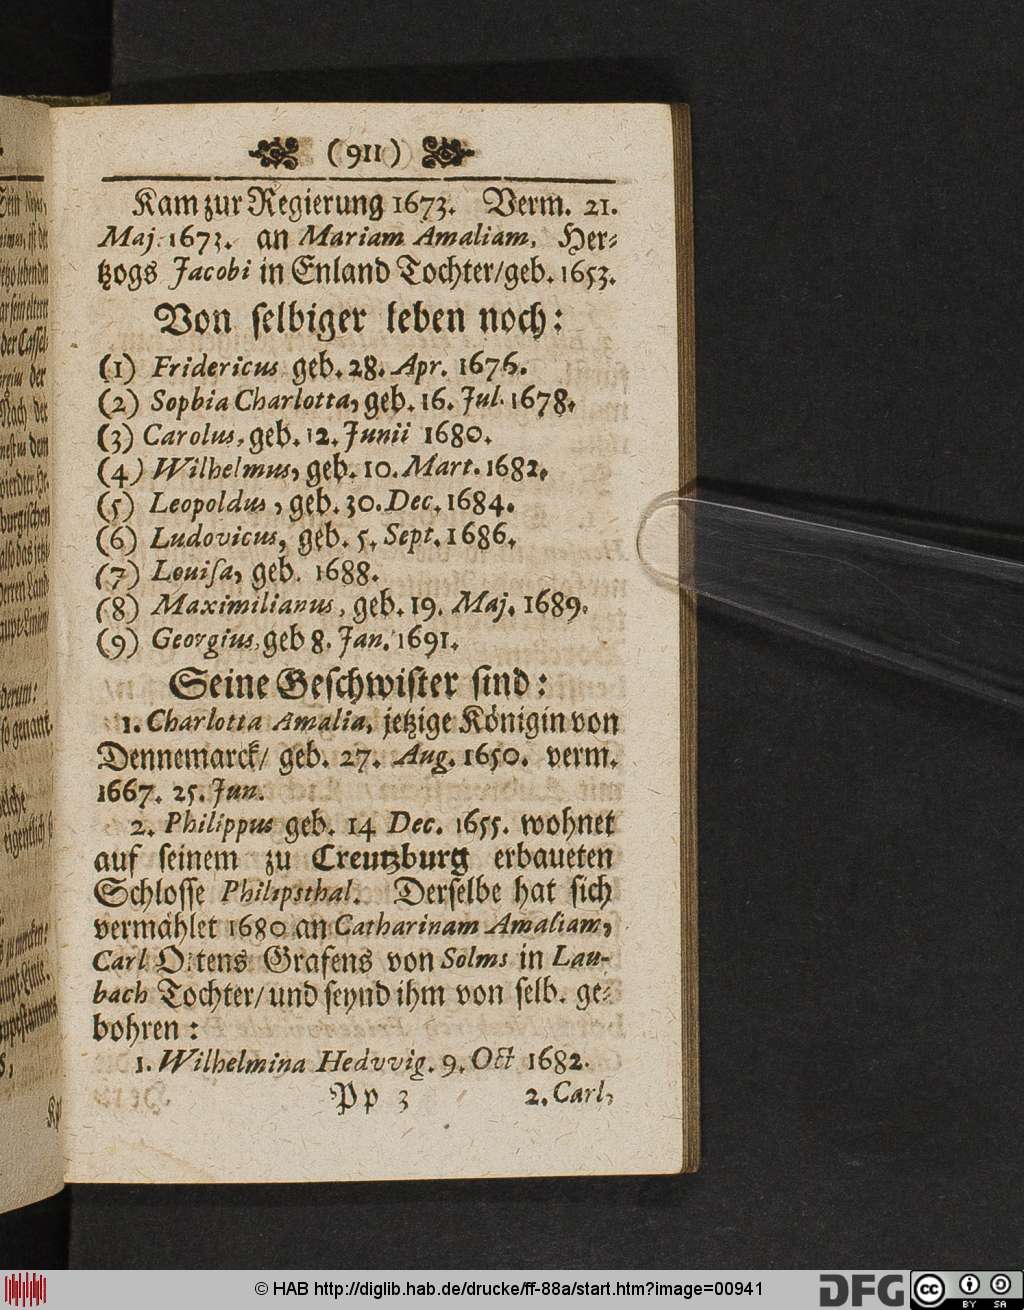 (911)
Kam zur Regierung 1673. Verm. 21.
Maj. 1673. an Mariam Amaliam, Her-
tzogs Jacobi in Enland Tochter/geb. 1653.
Von selbiger leben noch:
(1) Fridericus geb. 28. Apr. 1676.
(2) Sophia Charlotta, geb. 16. Jul. 1678.
(3) Carolus, geb. 12. Junii 1680.
(4) Wilhelmus, geb. 10. Mart. 1682.
(5) Leopoldus, geb. 30. Dec. 1684.
(6) Ludovicus, geb. 5. Sept. 1686.
(7) Louisa, geb. 1688.
(8) Maximilianus, geb. 19. Maj. 1689.
(9) Georgius, geb 8. Jan. 1691.
Seine Geschwister sind:
1. Charlotta Amalia, jetzige Königin von
Dennemarck/ geb. 27. Aug. 1650. verm.
1667. 25. Jun.
2. Philippus geb. 14 Dec. 1655. wohnet
auf seinem zu Creutzburg erbaueten
Schlosse Philipsthal. Derselbe hat sich
vermählet 1680 an Catharinam Amaliam,
Carl Ottens Grafens von Solms in Lau-
bach Tochter/ und seynd ihm von selb. ge-
bohren:
1. Wilhelmina Hedvvig. 9. Oct 1682.
Pp 3 2. Carl,
© HAB http://diglib.hab.de/drucke/ff-88a/start.htm?image=00941
DFG cc BY SA